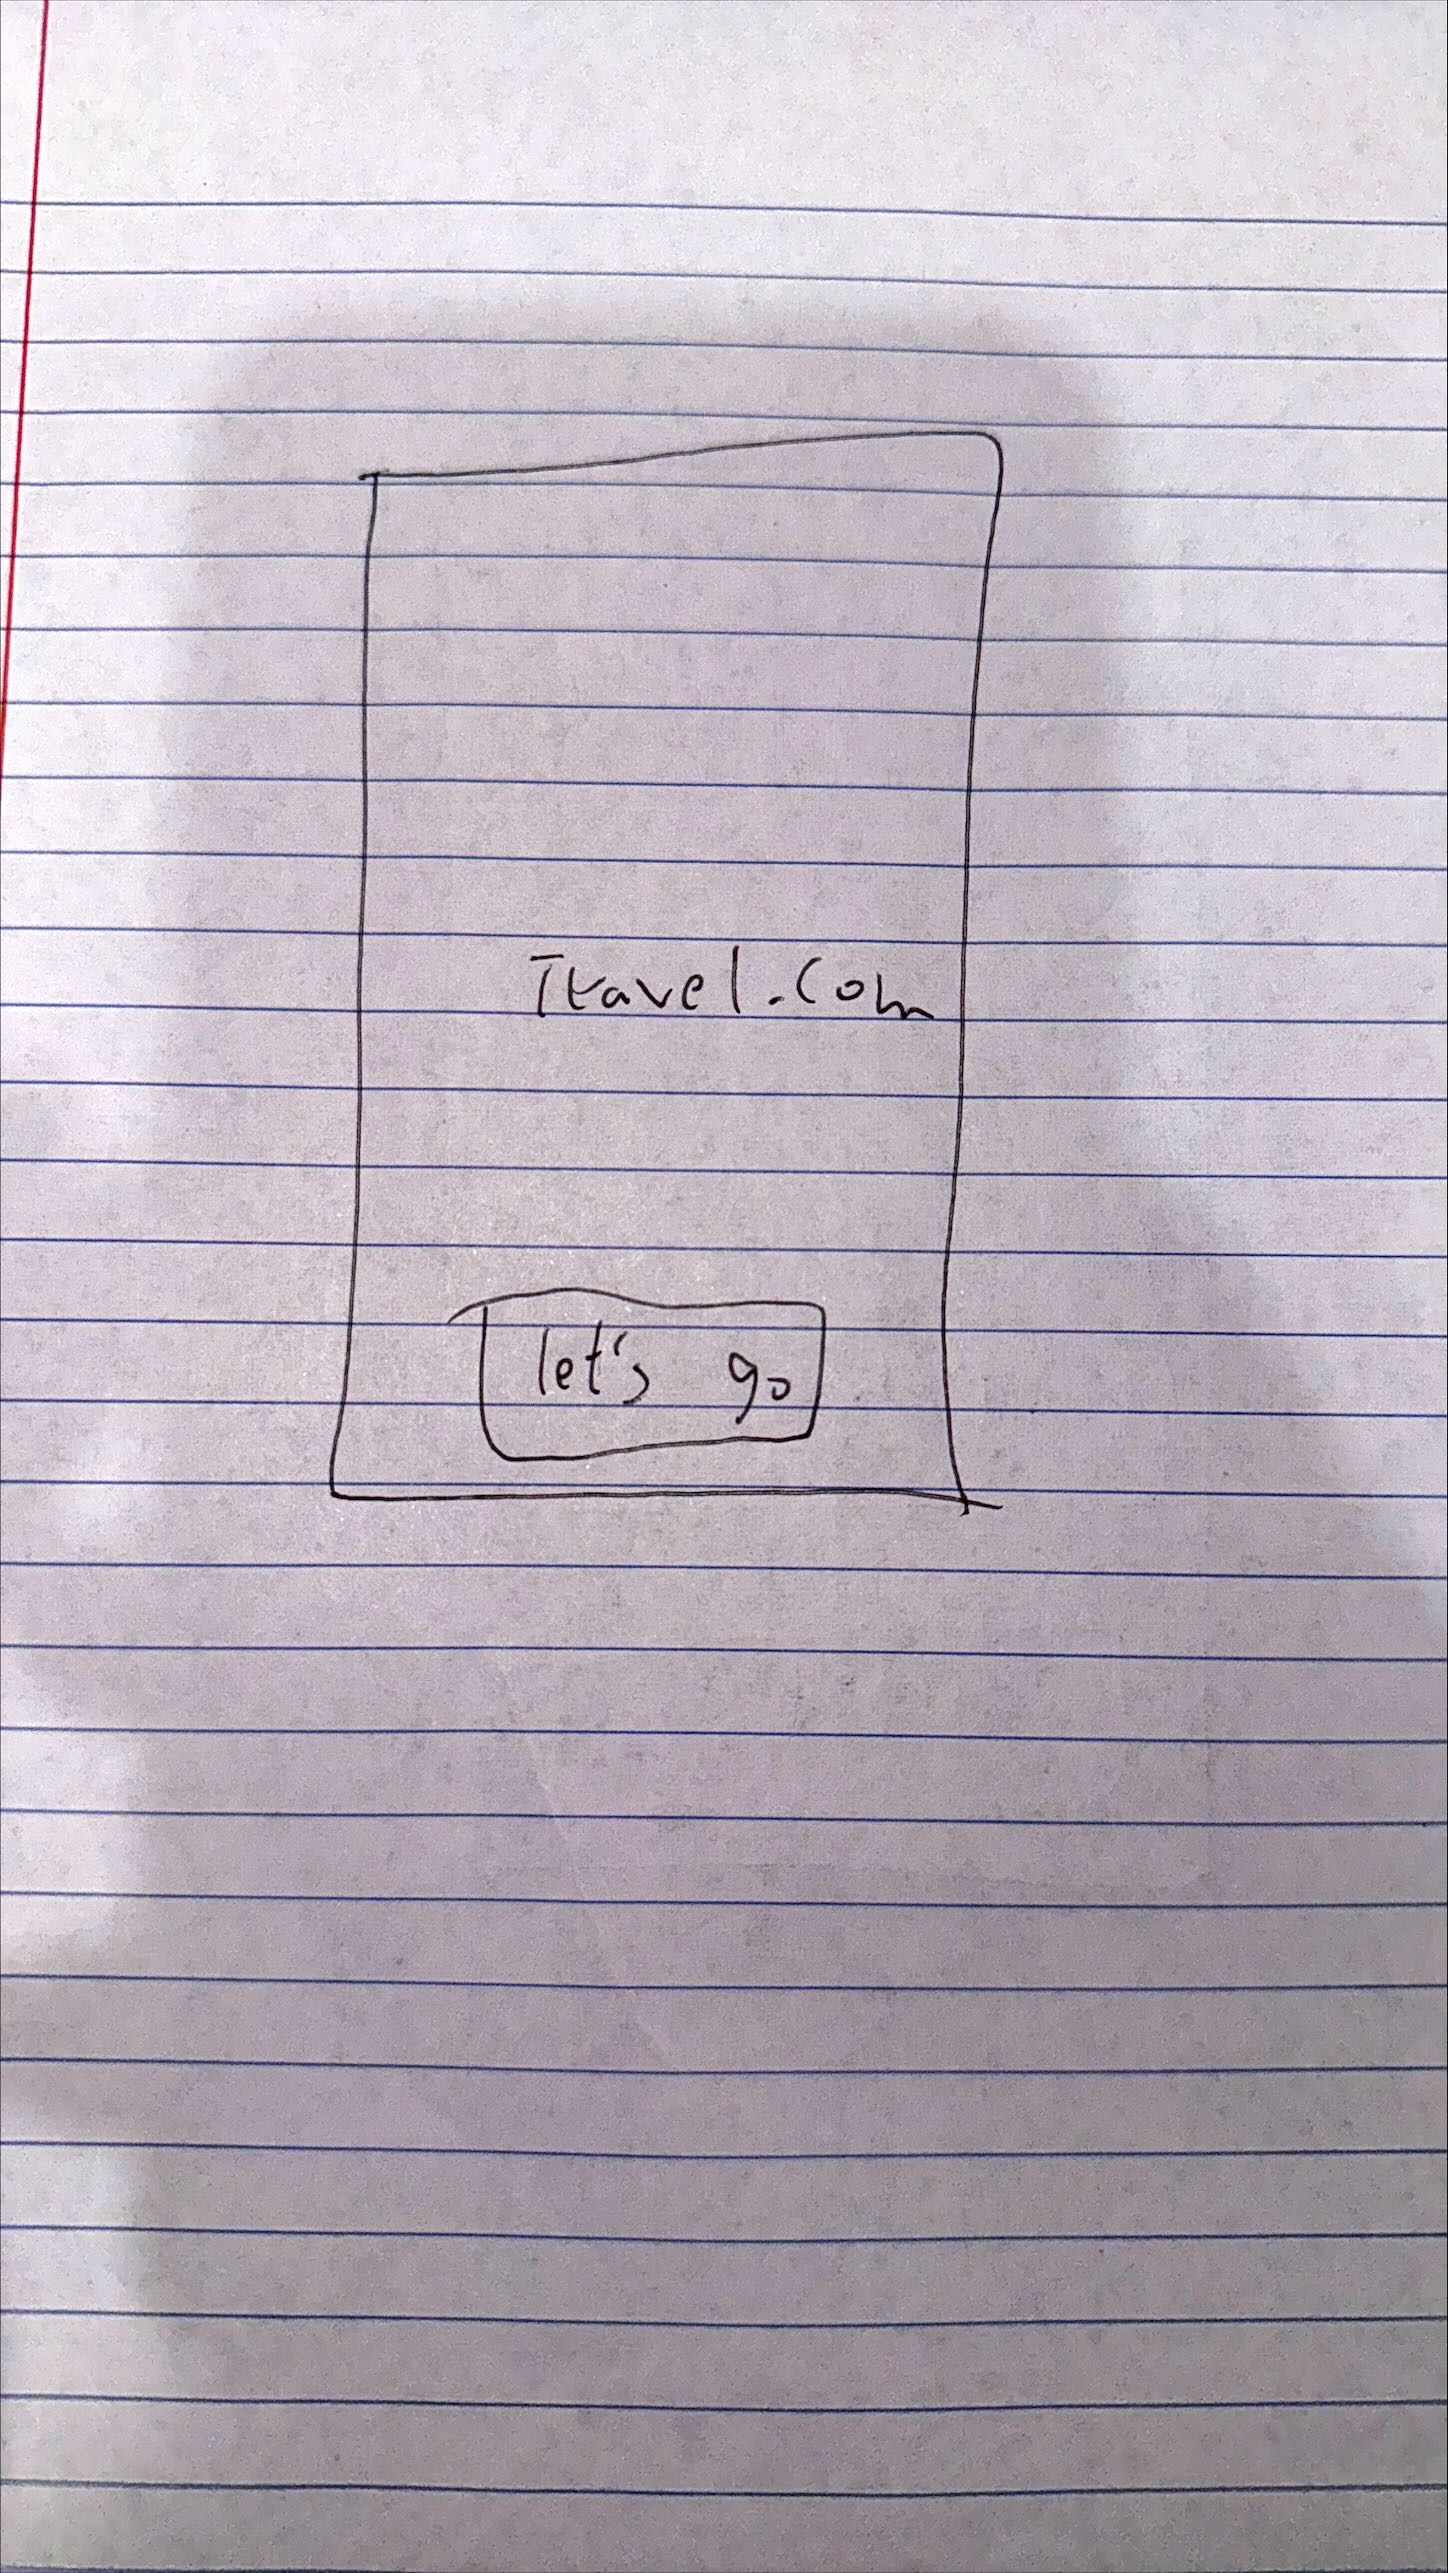 Travel.com
let's go